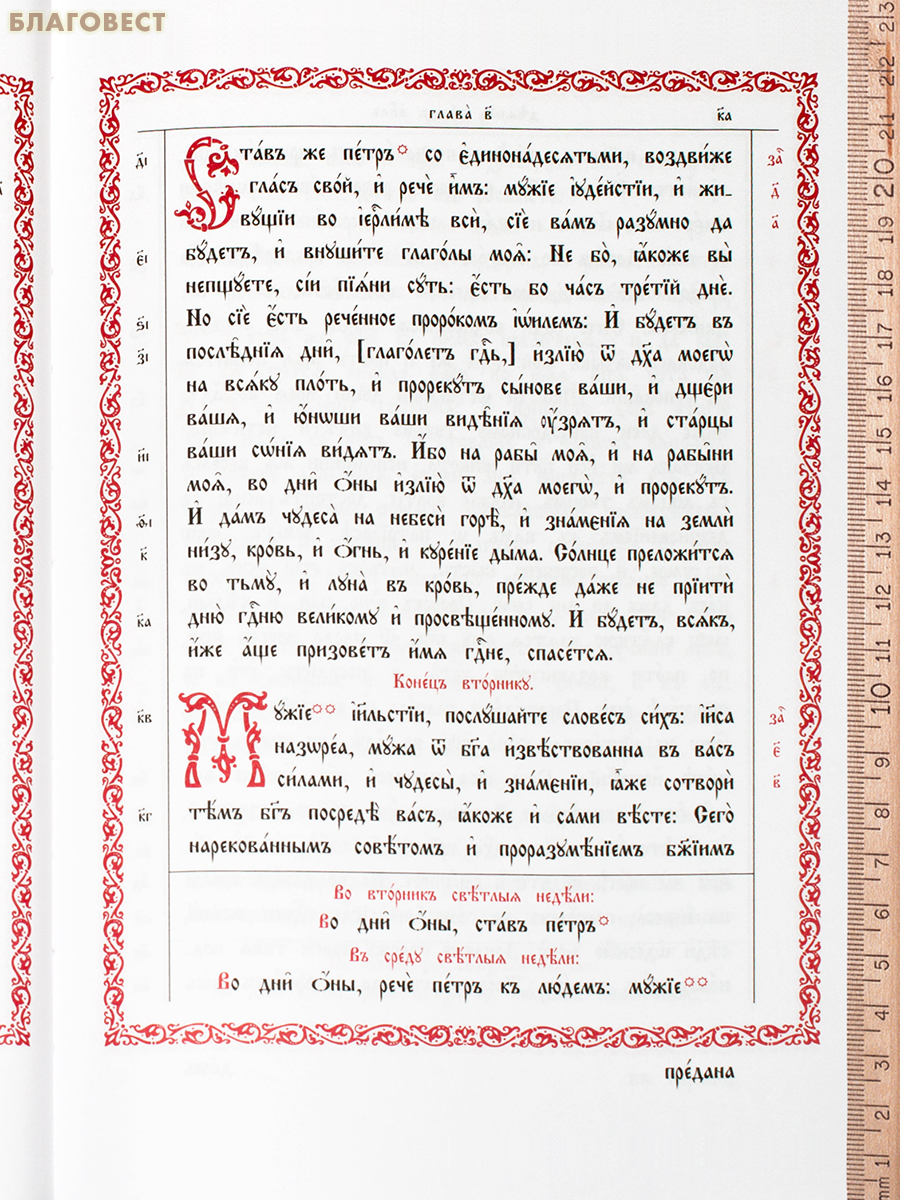 БЛАГОВЕСТ
глава̀ в҃ к҃а
Ста́въ же пе́тръ со є҆динона́десѧтьми, воздви́же за҄
гла́съ сво́й, и҆ речѐ и҆̀мъ: мꙋ́жїе і҆ꙋде́йстїи, и҆ жи- д҃
вꙋ́щїи во і҆ерⷭ҇ли́мѣ всѝ, сїѐ ва́мъ разꙋ́мно да а҃
бꙋ́детъ, и҆ внꙋши́те глаго́лы моѧ̑: Не бо̀, ꙗ҆́коже вы̀
непщꙋ́ете, сі́и пїѧ́ни сꙋ́ть: є҆́сть бо ча́съ тре́тїй днѐ.
Но сїѐ є҆́сть рече́нное проро́комъ і҆ѡи́лемъ: И҆ бꙋ́детъ въ
послѣ̑днїѧ дни̑, [глаго́летъ гдⷭ҇ь,] и҆злїю̀ ѿ дх҃а моегѡ̀
на всѧ́кꙋ пло́ть, и҆ прорекꙋ́тъ сы́нове ва́ши, и҆ дще́ри
ва́шѧ, и҆ ю҆́нѡши ва́ши видѣ̑нїѧ ᲂу҆́зрѧтъ, и҆ ста́рцы
ва́ши сѡ́нїѧ ви́дѧтъ. И҆́бо на рабы̑ моѧ̑, и҆ на рабы̑ни
моѧ̑, во дни̑ ѻ҆́ны и҆злїю̀ ѿ дх҃а моегѡ̀, и҆ прорекꙋ́тъ.
И҆ да́мъ чꙋдеса̀ на небесѝ горѣ̀, и҆ зна́мєнїѧ на землѝ
ни́зꙋ, кро́вь, и҆ ѻ҆́гнь, и҆ кꙋре́нїе ды́ма. Со́лнце преложи́тсѧ
во тьмꙋ̀, и҆ лꙋна̀ въ кро́вь, пре́жде да́же не прїитѝ
дню̀ гдⷭ҇ню вели́комꙋ и҆ просвѣще́нномꙋ. И҆ бꙋ́детъ, всѧ́къ,
и҆́же а҆́ще призове́тъ и҆́мѧ гдⷭ҇не, спасе́тсѧ.
Коне́цъ вто́рникꙋ.
Мꙋ́жїе і҆и҃льстїи, послꙋ́шайте слове́съ си́хъ: і҆и҃са за҄
назѡре́а, мꙋ́жа ѿ бг҃а и҆звѣ́ствованна въ ва́съ є҃
си́лами, и҆ чꙋдесы̀, и҆ зна́мєнїи, ꙗ҆̀же сотворѝ в҃
тѣ́мъ бг҃ъ посредѣ̀ ва́съ, ꙗ҆́коже и҆ са́ми вѣ́сте: Сего̀
нарекова́ннымъ совѣ́томъ и҆ проразꙋмѣ́нїемъ бж҃їимъ
Во вто́рникъ свѣ́тлыѧ недѣ́ли:
Во дни̑ ѻ҆́ны, ста́въ пе́тръ
Въ сре́дꙋ свѣ́тлыѧ недѣ́ли:
Во дни̑ ѻ҆́ны, речѐ пе́тръ къ лю́демъ: мꙋ́жїе
пре́дана
д҃і
є҃і
ѕ҃і
з҃і
и҃і
ѳ҃і
к҃
к҃а
к҃в
к҃г
mm 1 2 3 4 5 6 7 8 9 10 11 12 13 14 15 16 17 18 19 20 21 22 23